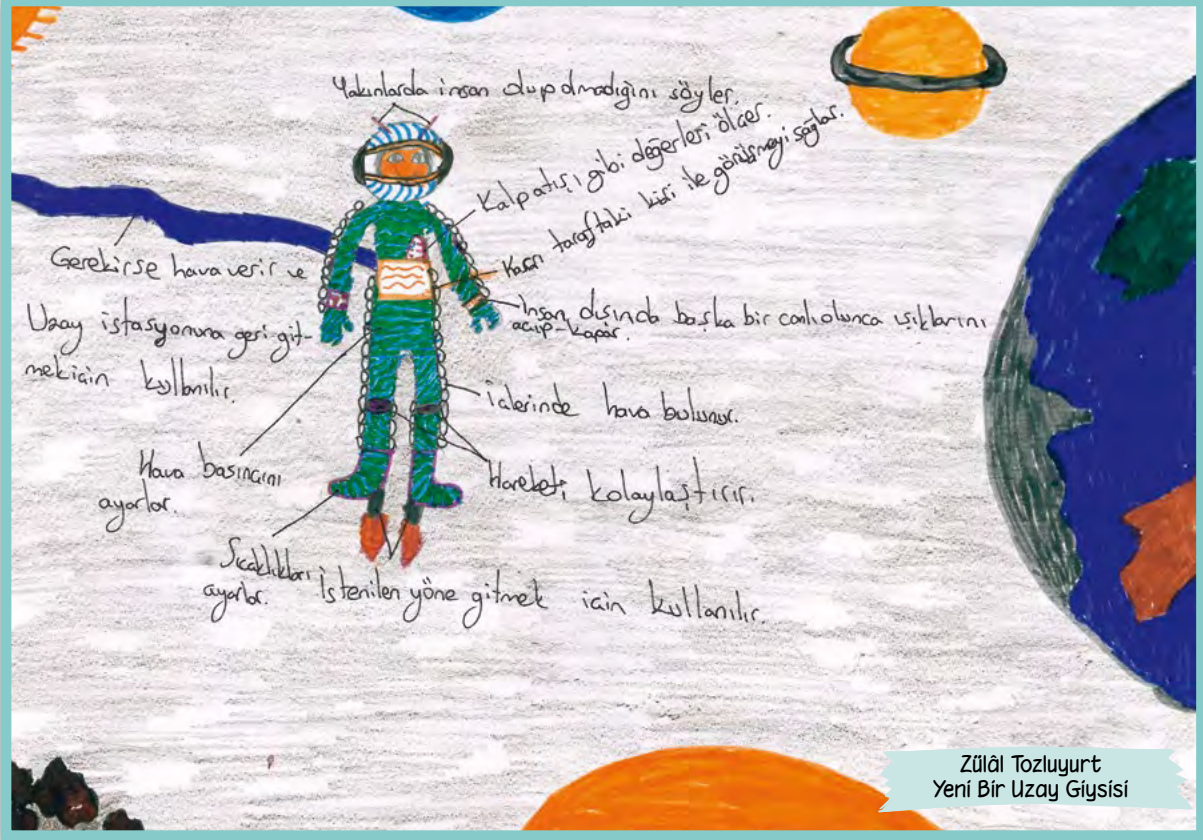 Yakınlarda insan olup olmadığını söyler.
Kalp atışı gibi değerleri ölçer.
Karşı taraftaki kişi ile görüşmeyi sağlar.
Gerekirse hava verir ve
Uzay istasyonuna geri git-
mek için kullanılır.
İnsan dışında başka bir canlı olunca ışıklarını
açıp-kapar.
İçlerinde hava bulunur.
Hava basıncını
ayarlar.
Hareketi kolaylaştırır.
Sıcaklıkları
ayarlar.
İstenilen yöne gitmek için kullanılır.
Zülâl Tozluyurt
Yeni Bir Uzay Giysisi